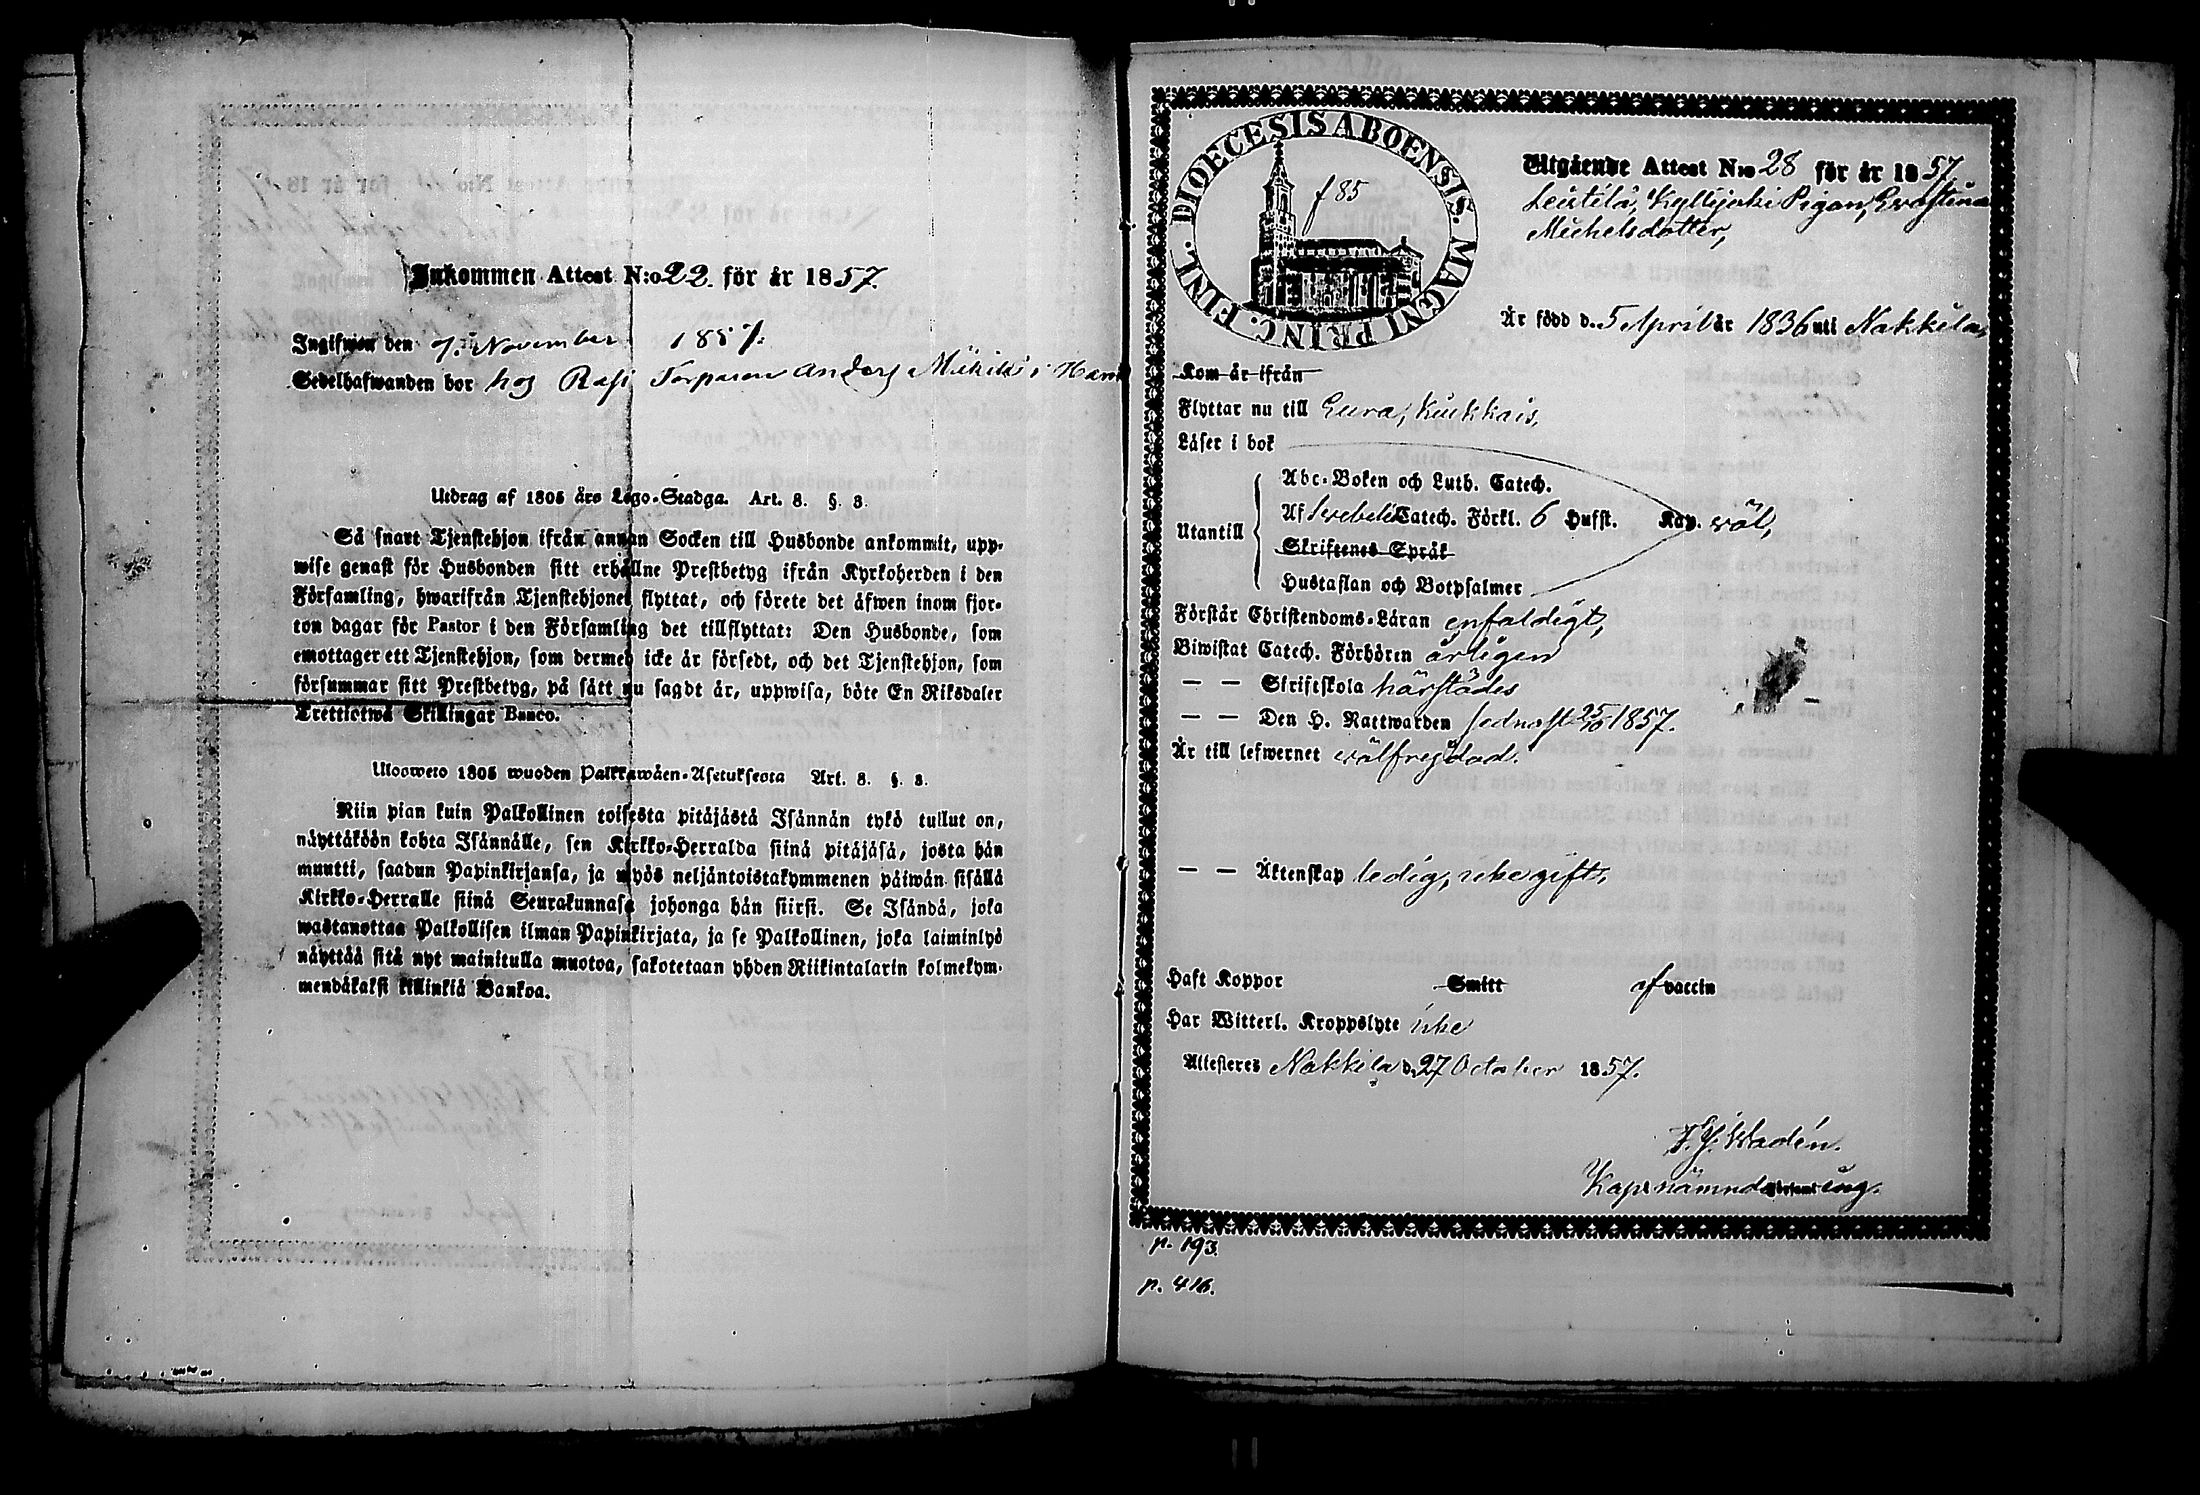 Inkommen Attest N:o 22. för år 1857.
Ingifwen den 7. November 1857.
Sedelhafwanden bor hos Rasi Torparen Anders Mickils i
Utdrag af 1805 års Lego-Stadga. Art. 8. §. 3.
Så snart Tjenstehjon ifrån annan Socken till Husbonde ankommit, upp-
wise genast för Husbonden sitt erhållne Prestbetyg ifrån Kyrkoherden i den
Församling, hwarifrån Tjenstehjonet flyttat, och förete det äfwen inom fjor-
ton dagar för Pastor i den Församling det tillflyttat: Den Husbonde, som
emottager ett Tjenstehjon, som dermed icke är försedt, och det Tjenstehjon, som
försummar sitt Prestbetyg, på sätt nu sagdt är, uppwisa, böte En Riksdaler
Trettiotwå Skillingar Banco.
Ulosweto 1805 wuoden Palkkawäen-Asetuksesta Art. 8. §. 3.
Niin pian kuin Palkollinen toisesta pitäjästä Isännän tykö tullut on,
näyttäköön kohta Isännälle, sen Kirkko-Herralda siinä pitäjäsä, josta hän
muutti, saadun Papinkirjansa, ja myös neljäntoistakymmenen päiwän sisällä
Kirkko-Herralle siinä Seurakunnasa johonga hän siirsi. Se Isändä, joka
wastanottaa Palkollisen ilman Papinkirjata, ja se Palkollinen, joka laiminlyö
näyttää sitä nyt mainitulla muotoa, sakotetaan yhden Riikintalarin kolmekym-
mendäkaksi killinkiä Bankoa.
DIOECESIS ABOENSIS. MAGNI PRINC. FINL.
f 85
Utgående Attest N:o 28 för år 1857.
Leistilä, Kyllijoki Pigan, Evastina
Michelsdotter,
Är född d. 5 April år 1836 uti Nakkila,
Kom år ifrån
Flyttar nu till Eura, Kiukkais,
Läser i bok
Abc-Boken och Luth. Catech.
Utantill
Af Svebelii Catech. Förkl. 6 Hufst. Kap. väl,
Skriftenes Språk
Hustaflan och Botpsalmer
Förstår Christendoms-Läran enfaldigt,
Biwistat Catech. Förhören årligen
— — Skriftskola härstädes
— — Den H. Nattwarden sednast 25/10 1857.
Är till lefwernet välfrejdad.
— — Äktenskap ledig, icke gift,
Haft Koppor Smitt af vaccin
Har Witterl. Kroppslyte icke
Attesteras Nakkila d. 27 October 1857.
Wadén.
p. 193.
p. 416.